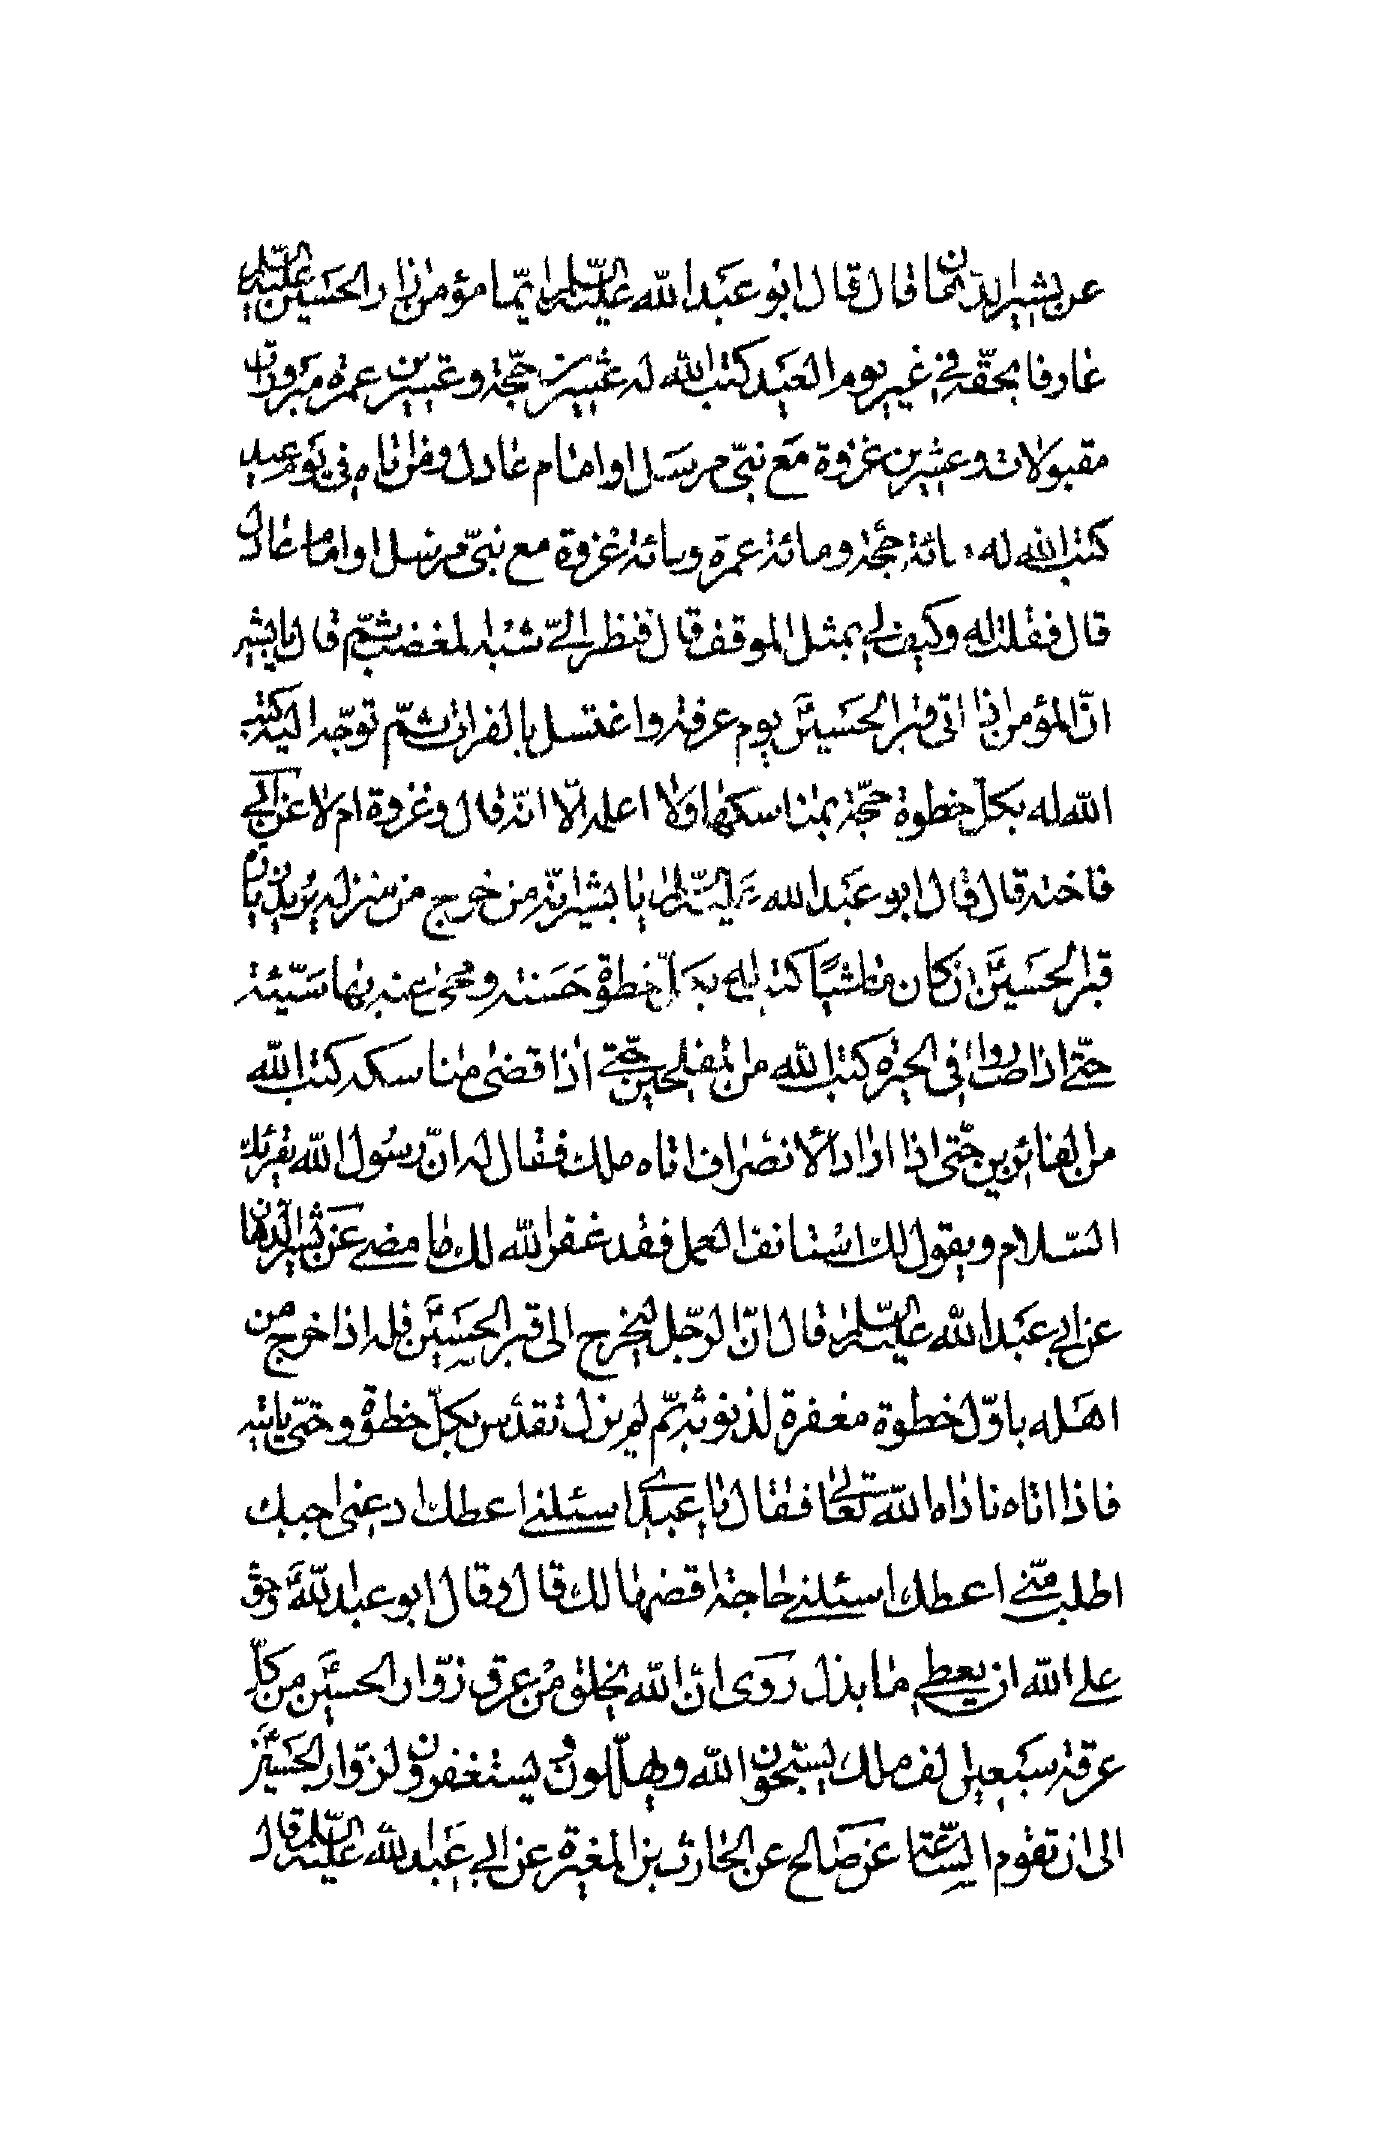 عن بشير الدهان قال قال ابو عبد الله عليه السلام ايّما مؤمن زار الحسين عليه السلام
عارفا بحقّه في غير يوم العيد كتب الله له عشرين حجّة وعشرين عمرة مبرورات
مقبولات وعشرين غزوة مع نبيّ مرسل او امام عادل ومن اتاه في يوم عيد
كتب الله له مائة حجّة ومائة عمرة ومائة غزوة مع نبيّ مرسل او امام عادل
قال فقلت له وكيف لي بمثل الموقف قال فنظر اليّ شبه المغضب ثمّ قال يا بشير
انّ المؤمن اذا اتى قبر الحسين يوم عرفة واغتسل بالفرات ثمّ توجّه اليه كتب
الله له بكلّ خطوة حجّة بمناسكها ولا اعلمه الّا انّه قال وغزوة ام لا عن ابي
فاخته قال قال ابو عبد الله عليه السلام يا بشير انّه من خرج من منزله يريد زيارة
قبر الحسين ان كان ماشيًا كتب الله بكلّ خطوة حسنة ومحى عنه بها سيّئة
حتّى اذا صار في الحير كتب الله من المفلحين حتّى اذا قضى مناسكه كتب الله
من الفائزين حتّى اذا اراد الانصراف اتاه ملك فقال له انّ رسول الله يقرئك
السّلام ويقول لك استانف العمل فقد غفر الله لك ما مضى عن بشير الدّهان
عن ابي عبد الله عليه السّلام قال انّ الرّجل ليخرج الى قبر الحسين فله اذا خرج من
اهله باوّل خطوة مغفرة لذنوبه ثمّ لم يزل تقدّس بكلّ خطوة وحتّى ياتيه
فاذا اتاه ناداه الله تعالى فقال يا عبدي اسئلني اعطك ادعني اجبك
اطلب منّي اعطك اسئلني حاجة اقضها لك قال وقال ابو عبد الله وحق
على الله ان يعطي ما بذل روى انّ الله يخلق من عرق زوّار الحسين من كلّ
عرقة سبعين الف ملك يسبّحون الله ويهلّلون ويستغفرون لزوّار الحسين
الى ان تقوم السّاعة عن صالح عن الحارث بن المغيرة عن ابي عبد الله عليه السّلام قال